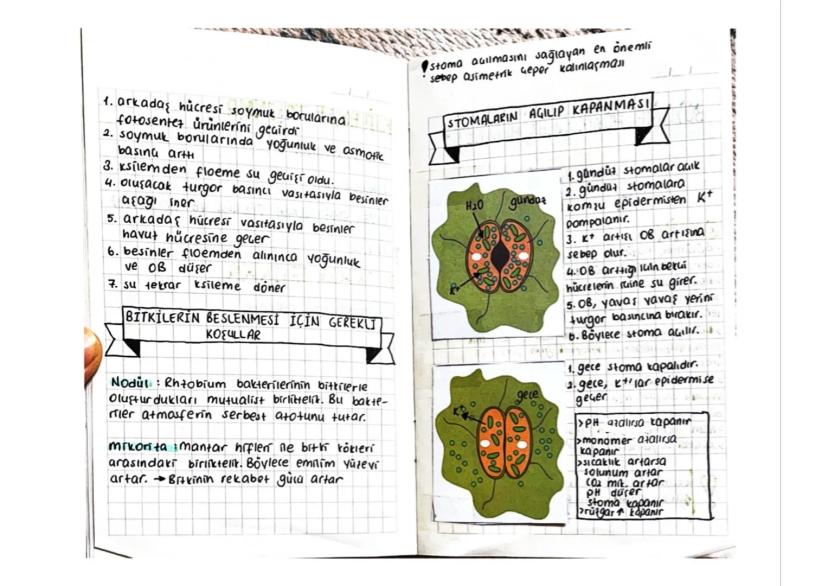 1. arkadaş hücresi soymuk borularına
fotosentez ürünlerini geçirdi
2. soymuk borularında yoğunluk ve osmotik
basınç arttı
3. ksilemden floeme su geçişi oldu.
4. oluşacak turgor basıncı vasıtasıyla besinler
aşağı iner
5. arkadaş hücresi vasıtasıyla besinler
havuz hücresine geçer
6. besinler floemden alınınca yoğunluk
ve OB düşer
7. su tekrar ksileme döner
BİTKİLERİN BESLENMESİ İÇİN GEREKLİ
KOŞULLAR
Nodül : Rhizobium bakterilerinin bitkilerle
oluşturdukları mutualist birliktelik. Bu bakte-
riler atmosferin serbest azotunu tutar.
mikoriza : mantar hifleri ile bitki kökleri
arasındaki birliktelik. Böylece emilim yüzeyi
artar. → Bitkinin rekabet gücü artar
! stoma açılmasını sağlayan en önemli
sebep asimetrik çeper kalınlaşması
STOMALARIN AÇILIP KAPANMASI
H2O
gündüz
K+
1. gündüz stomalar açık
2. gündüz stomalara
komşu epidermisten K+
pompalanır.
3. K+ artışı OB artışına
sebep olur.
4. OB arttığı için bekçi
hücrelerin içine su girer.
5. OB, yavaş yavaş yerini
turgor basıncına bırakır.
6. Böylece stoma açılır.
K+
gece
1. gece stoma kapalıdır.
2. gece, K+'lar epidermise
geçer
>PH azalırsa kapanır
>monomer azalırsa
kapanır
>sıcaklık artarsa
solunum artar
CO2 mik. artar
PH düşer
stoma kapanır
>rüzgar ↑ kapanır